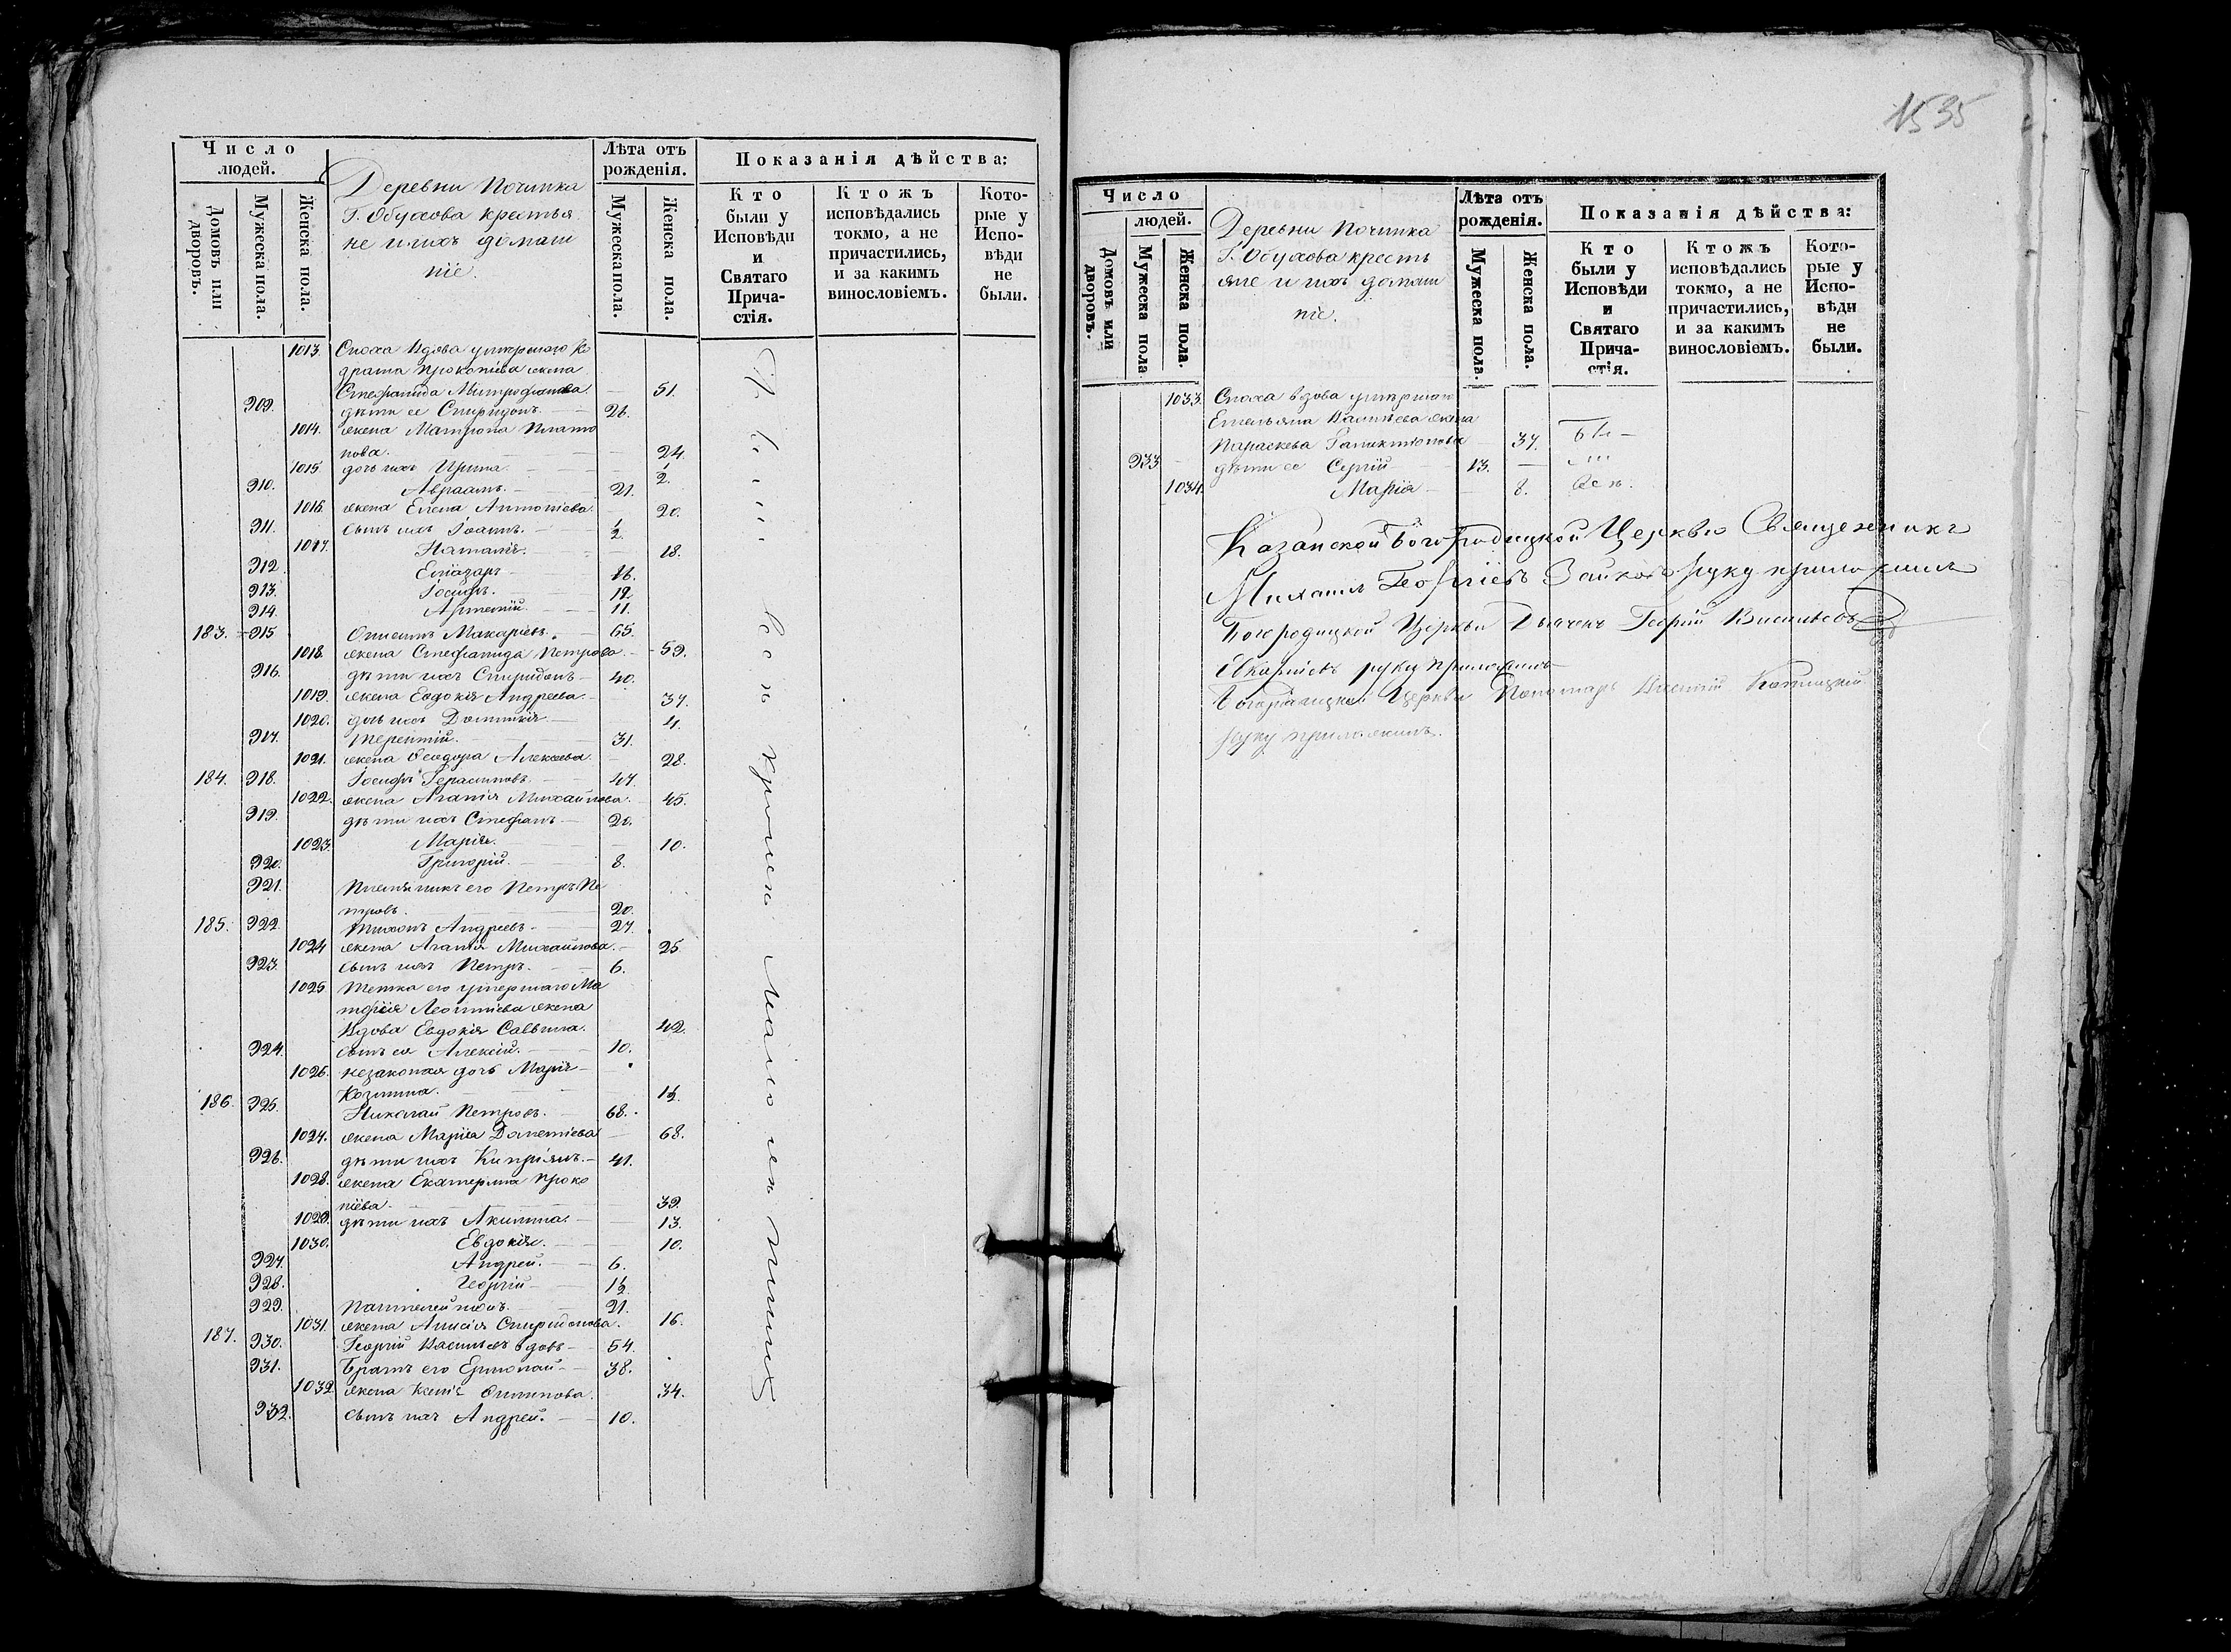 Число людей.
Деревни Починка
Г. Обухова крестья
не и ихъ домаш
ніе.
Лѣта отъ рожденія.
Показанія дѣйства:
Домовъ или дворовъ.
Мужеска пола.
Женска пола.
Мужеска пола.
Женска пола.
Кто были у Исповѣди и Святаго Причастія.
Ктожъ исповѣдались токмо, а не причастились, и за какимъ винословіемъ.
Которые у Исповѣди не были.
1013. Сноха вдова умершаго Ко
драта Прокопіева жена
Стефанида Митрофанова 51.
909. дѣти ее Спиридонъ 26.
1014. жена Матрона Плато
нова. 24.
1015. дочь ихъ Ирина 1/2.
910. Авраамъ. 21.
1016. жена Елена Антоніева. 20.
911. сынъ ихъ Іоаннъ. 1/2.
1017. Наталія. 18.
912. Елеазаръ 16.
913. Іосифъ. 12.
914. Артемій. 11.
183. 915. Макаріевъ. 65.
1018. жена Стефанида Петрова. 59.
916. дѣти ихъ Спиридонъ 40.
1019. жена Евдокія Андреева. 37.
1020. дочь ихъ Домникія. 4.
917. Терентій. 31.
1021. жена Ѳеодора Алексѣева. 28.
184. 918. Іосифъ Герасимовъ. 47.
1022. жена Агапія Михайлова. 45.
919. дѣти ихъ Стефанъ 20.
1023. Марія. 10.
920. Григорій. 8.
921. Племянникъ его Петръ Пе
тровъ. 20.
185. 922. Тихонъ Андреевъ. 27.
1024 жена Агапія Михайлова. 25.
923. сынъ ихъ Петръ. 6.
1025 Тетка его умершаго Ма
тфія Леонтіева жена
Вдова Евдокія Саввина. 42.
924. сынъ ея Алексій. 10.
1026. незаконная дочь Марія
Козмина. 1 1/2.
186. 925. Николай Петровъ. 68.
1027. жена Марія Дометіева 68.
926. дѣти ихъ Кипріянъ. 41.
1028. жена Екатерина Проко
піева. 39.
1029. дѣти ихъ Акилина. 13.
1030. Евдокія. 10.
927. Андрей. 6.
928. Георгій 1 1/2.
929. Пантелеймонъ. 21.
1031. жена Анисія Спиридонова. 16.
187. 930. Георгій Васильевъ вдовъ 54.
931. Братъ его Ермолай 38.
1032 жена Ксенія 34.
932. сынъ ихъ Андрей. 10.
Были всѣ кромѣ малолѣтнихъ
1535
Число людей.
Деревни Починка
Г. Обухова кресть
яне и ихъ домаш
ніе.
Лѣта отъ рожденія.
Показанія дѣйства:
Домовъ или дворовъ.
Мужеска пола
Женска пола.
Мужеска пола.
Женска пола.
Кто были у Исповѣди и Святаго Причастія.
Ктожъ исповѣдались токмо, а не причастились, и за какимъ винословіемъ.
Которые у Исповѣди не были.
1033. Сноха вдова умершаго
Емельяна Васильева жена
Параскева Галактіонова 37. Бы
933 дѣти ее Сергій 13. ли
1034. Марія 8. всѣ.
Казанской Богородицкой Церкви Священникъ
Михаилъ Георгіевъ Зайковъ руку приложилъ
Богородицкой Церкви Дьячекъ Георгій Васильевъ
руку приложилъ
Богородицкой Церкви Пономарь
руку приложилъ.